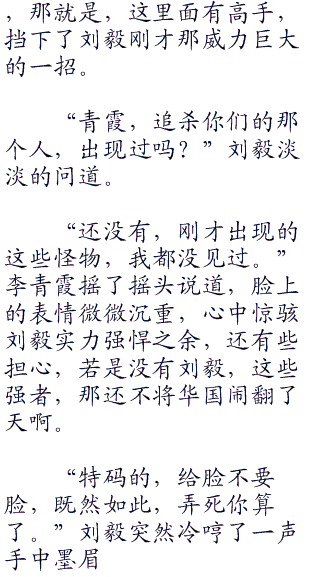 ，那就是，这里面有高手，
挡下了刘毅刚才那威力巨大
的一招。
“青霞，追杀你们的那
个人，出现过吗？”刘毅淡
淡的问道。
“还没有，刚才出现的
这些怪物，我都没见过。”
李青霞摇了摇头说道，脸上
的表情微微沉重，心中惊骇
刘毅实力强悍之余，还有些
担心，若是没有刘毅，这些
强者，那还不将华国闹翻了
天啊。
“特码的，给脸不要
脸，既然如此，弄死你算
了。”刘毅突然冷哼了一声
手中墨眉